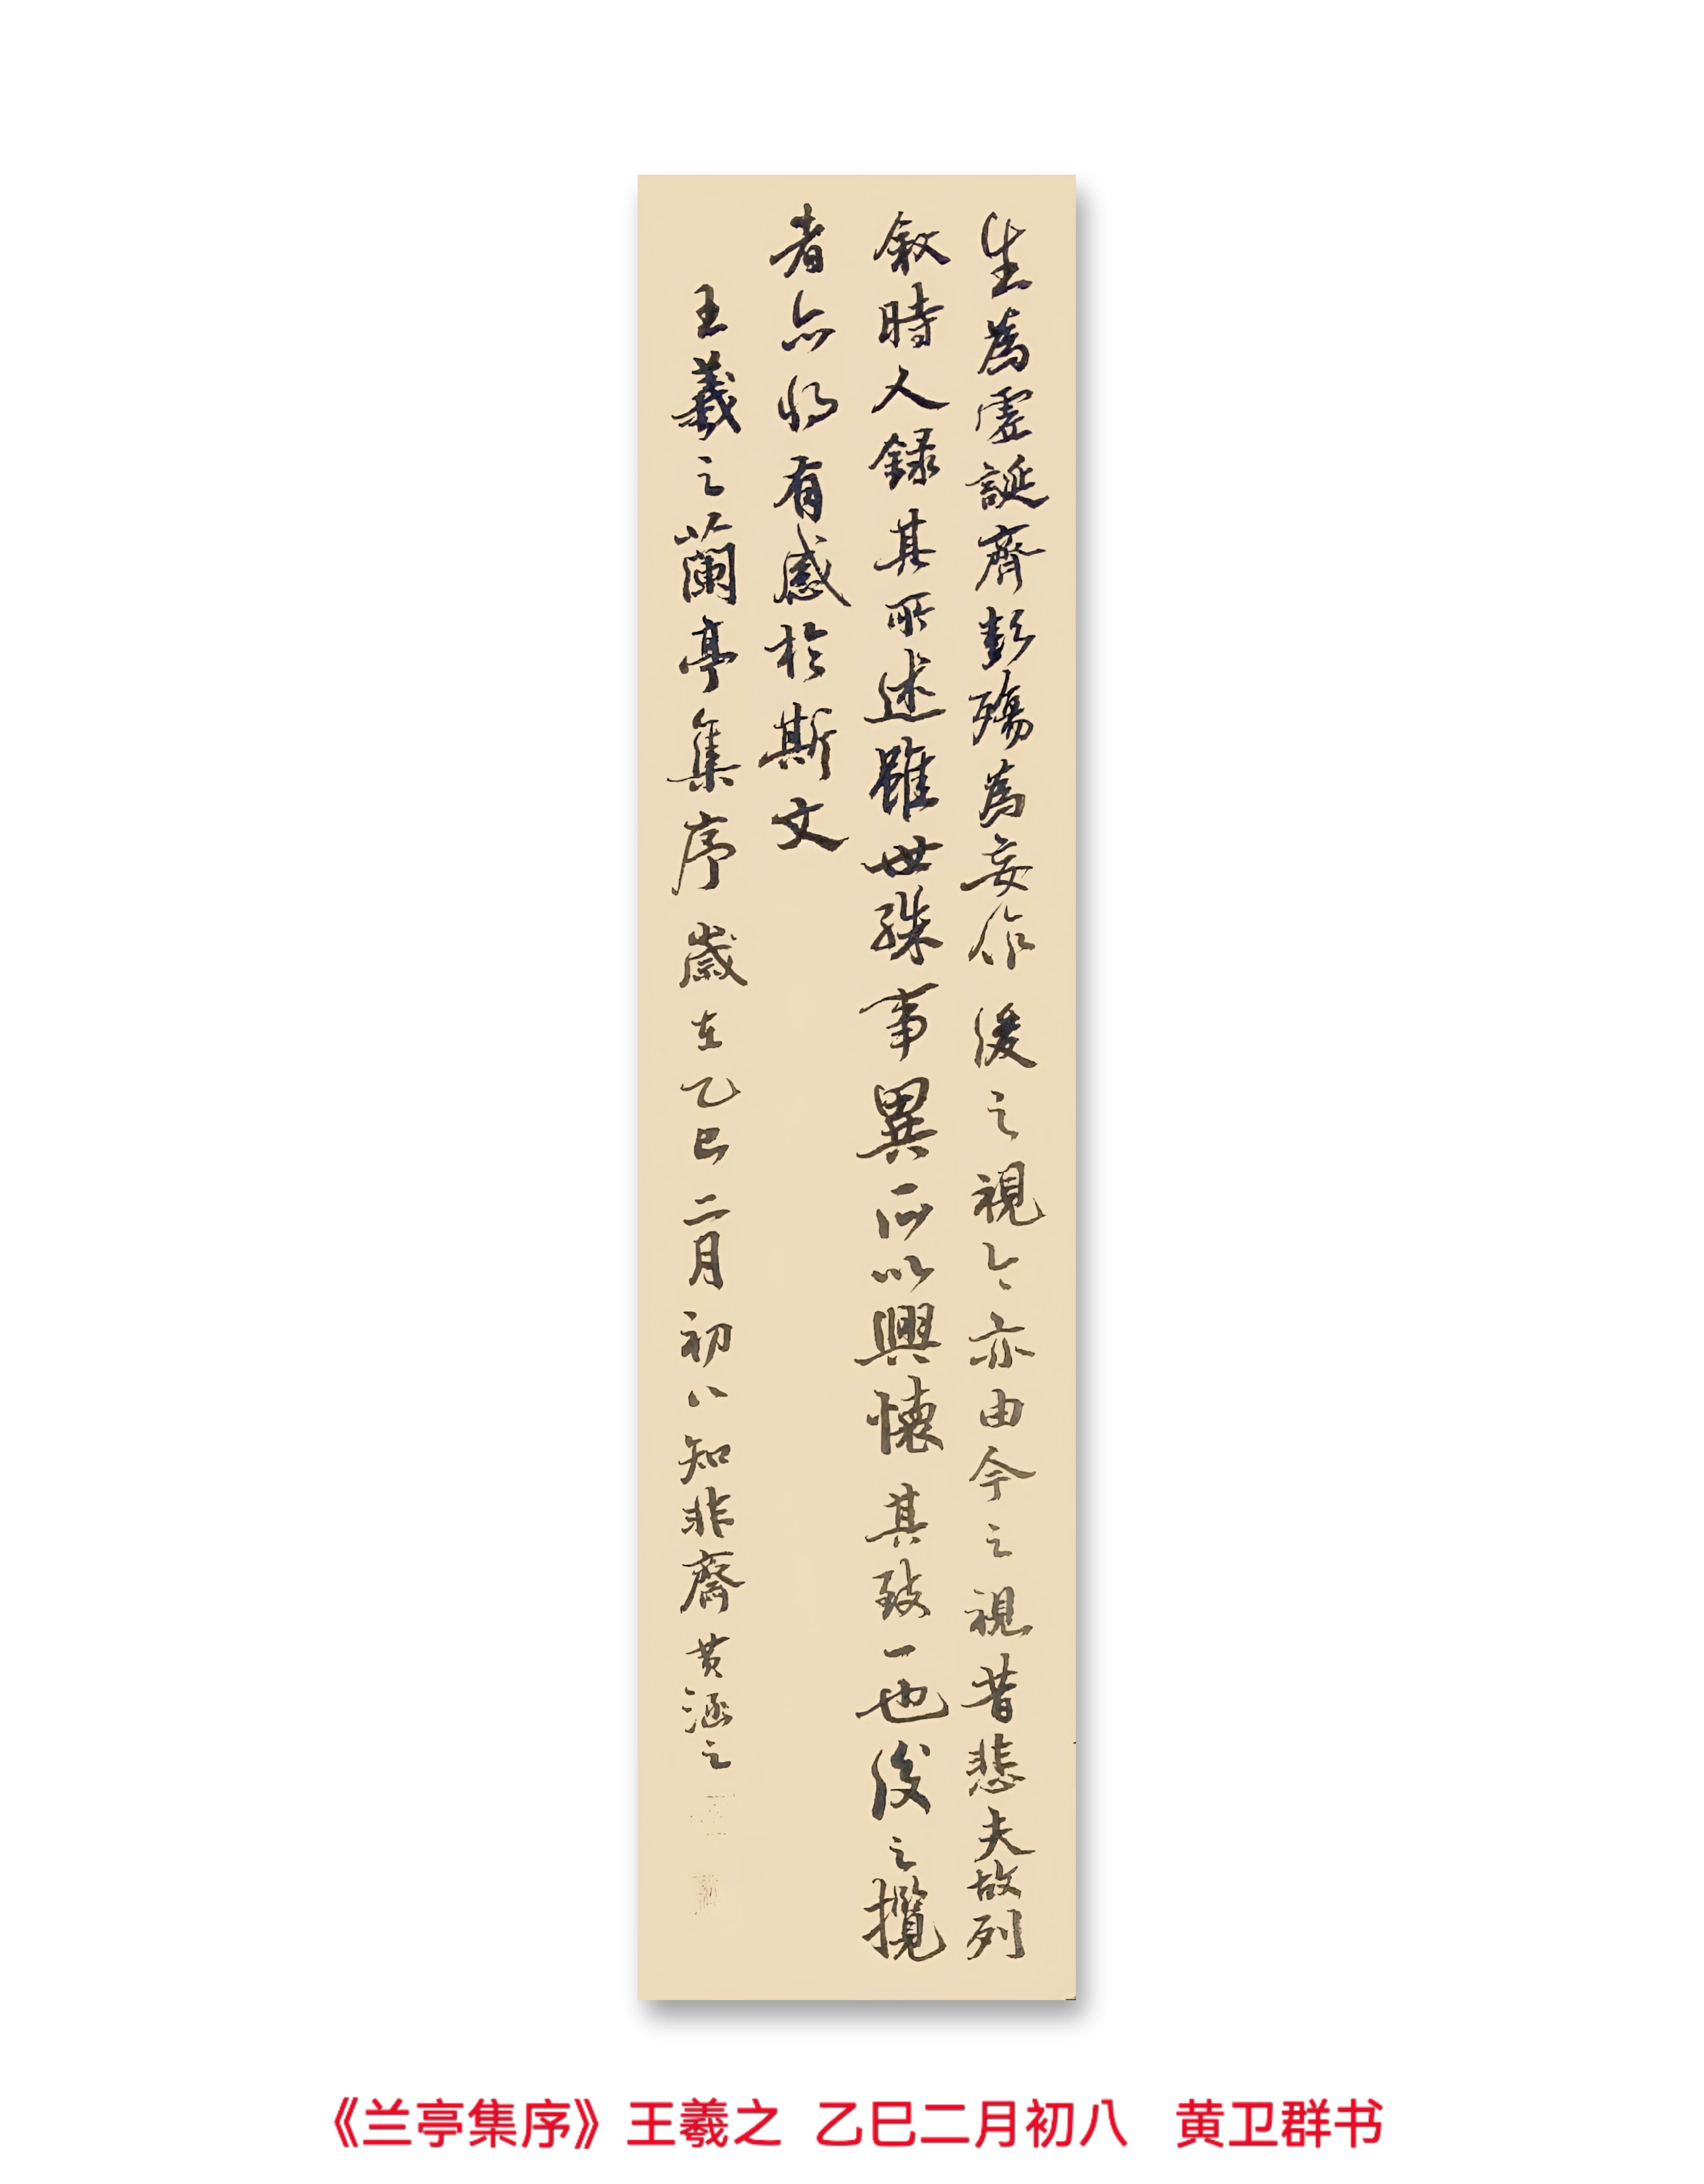 生為虛誕齊彭殤為妄作後之視今亦由今之視昔悲夫故列
敘時人錄其所述雖世殊事異所以興懷其致一也後之攬
者亦將有感於斯文
王羲之蘭亭集序歲在乙巳二月初八知非齋黄涵之
《兰亭集序》王羲之 乙巳二月初八 黄卫群书